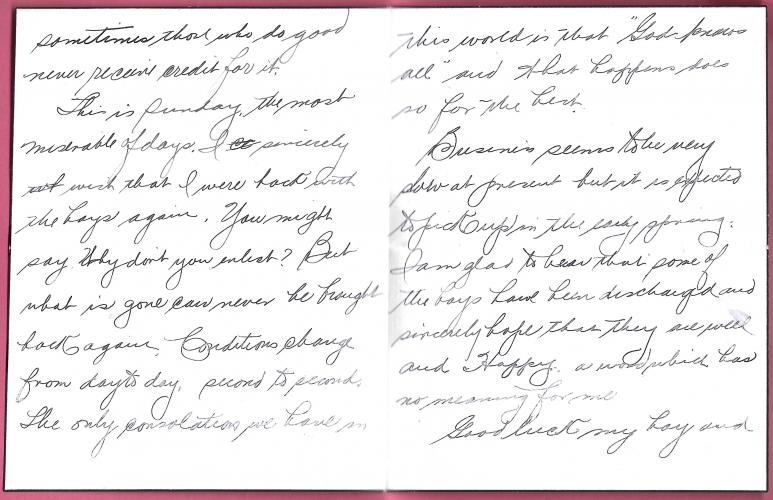 sometimes those who do good
never receive credit for it.
This is Sunday, the most
miserable of days. I sincerely
wish that I were back with
the boys again. You might
say Why don't you enlist? But
what is gone can never be brought
back again. Conditions change
from day to day, second to second.
The only consolation we have in
this world is that "God knows
all" and that happens does
so for the best.
Business seems to be very
slow at present but it is expected
to pick up in the early spring.
I am glad to hear that some of
the boys have been discharged and
sincerely hope that they are well
and Happy. a word which has
no meaning for me
Good luck my boy and